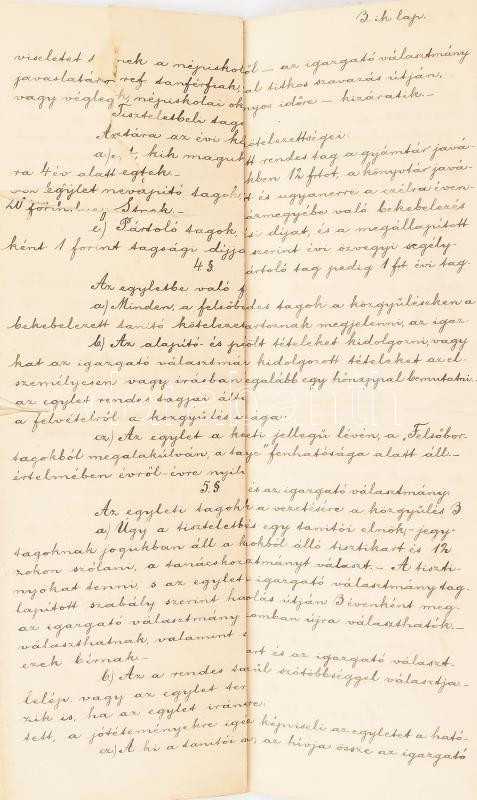 3 ik lap.
viseletet nek a népiskotól — az igazgató választmány
javaslatára ref. tanférfiak al titkos szavazás útján,
vagy végleg népiskolai oknyos időre — kizáratik. —
Tiszteletbeli tag
Az tára az évi kötelezettségei:
a) kik maguk tt rendes tag a gyámtár javá-
ra 4 év alatt egtek. — kben 12 frtot, a könyvtár javá-
egylet nevezjitó tagok, t és ugyanerre a czélra éven-
20 forin Stnak. — ármegyébe való bekebelezés
e) Pártoló tagok, si díjat, és a megállapított
ként 1 forint tagsági díjja szerint évi özvegyi segély-
4 § ártoló tag pedig 1 ft évi tag.
Az egyletbe való f
a) Minden, a felsőb des tagok a közgyűléseken a
bekebelezett tanító kötelezetartoznak megjelenni, az igaz-
b) Az alapító- és p ölt tételeket kidolgozni, vagy
kat az igazgató választmá kidolgozott tételeket az el-
személyesen vagy írásba egalább egy hónappal bemutatni. —
az egylet rendes tagjai álta
a felvételről a közgyűlés sága:
az) Az egylet a k eti" jellegű lévén, a „Felsőbor-
tagokból megalakúlván, a ta ye" fenhatósága alatt áll. —
értelmében évről-évre nyilv
5. § és az igazgató választmány.
Az egyleti tagok a vezetésére a közgyűlés 3
a) Úgy a tiszteletb s egy tanítói elnök, — jegy-
tagoknak jogukban áll a kokból álló tisztikart és 12
zokon szólani, a tanácskozatmányt választ. — A tiszti-
nyokat tenni, s az egylet igazgató választmány tag-
lapított szabály szerint ha olás útján 3 évenként meg.
az igazgató választmány omban újra választhatók. —
választhatnak, valamint s
ezek bírnak. — art és az igazgató választ-
b) Az a rendes ta úl szótöbbséggel választja-
belép, vagy az egylet ter
zik is, ha az egylet irán re:
tett, a jótéteményekre igé képviseli az egyletet a ható-
az) A ki a tanítói a , az hívja össze az igazgató